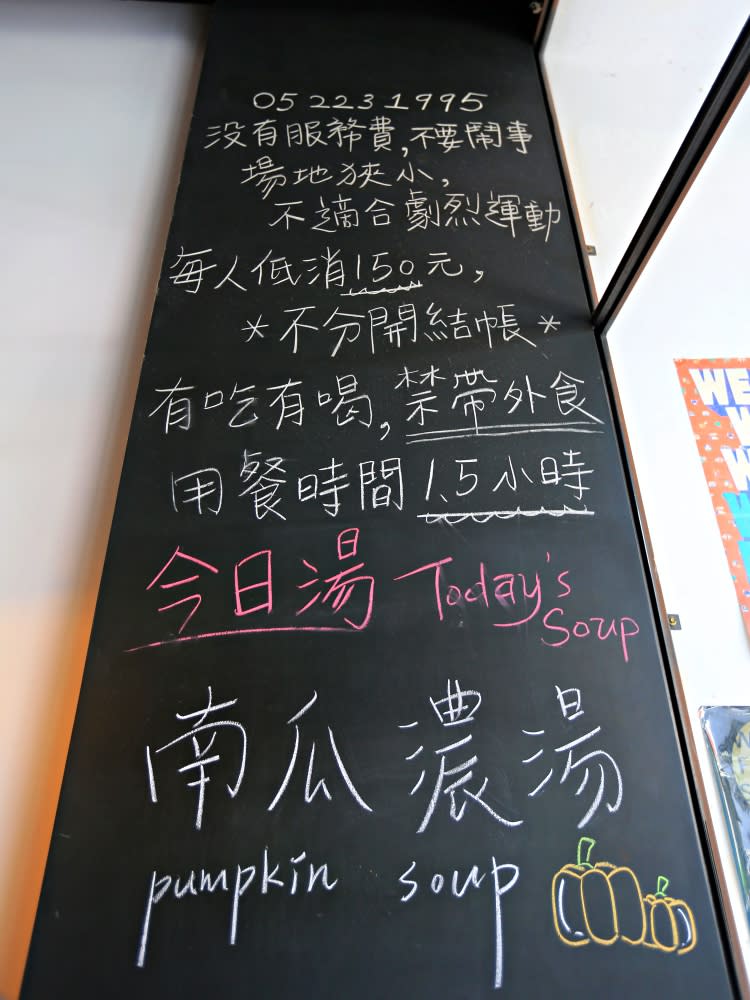 05 223 1995
没有服務費,不要鬧事
場地狹小,
不適合劇烈運動
每人低消150元,
*不分開結帳*
有吃有喝,禁帶外食
用餐時間1.5小時
今日湯 Today's
Soup
南瓜濃湯
pumpkin soup
WE